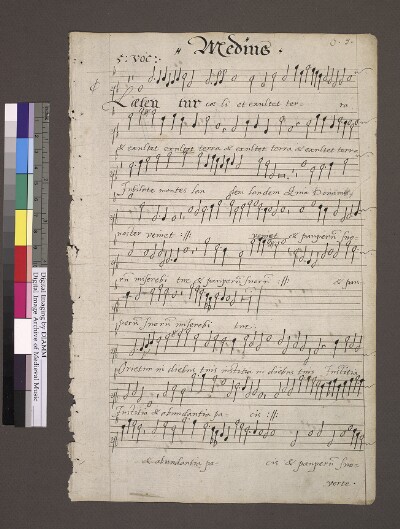 Medius.
5: voc:
Læten tur cæli et exultet ter ra
& exultet exultet terra & exultet terra & exultet terra
Jubilate montes lau dem laudem Quia Dominus
noster veniet :||: veniet & pauperũ suo
rũ miserebi tur & pauperũ suorũ :||: & pau
perũ suorũ miserebi tur
Orietur in diebus tuis in diebus tuis Justitia
Justitia & abundantia pa cis :||:
& abundantia pa cis & pauperũ suo
verte.
Digital Imaging by DIAMM
Digital Image Archive of Medieval Music